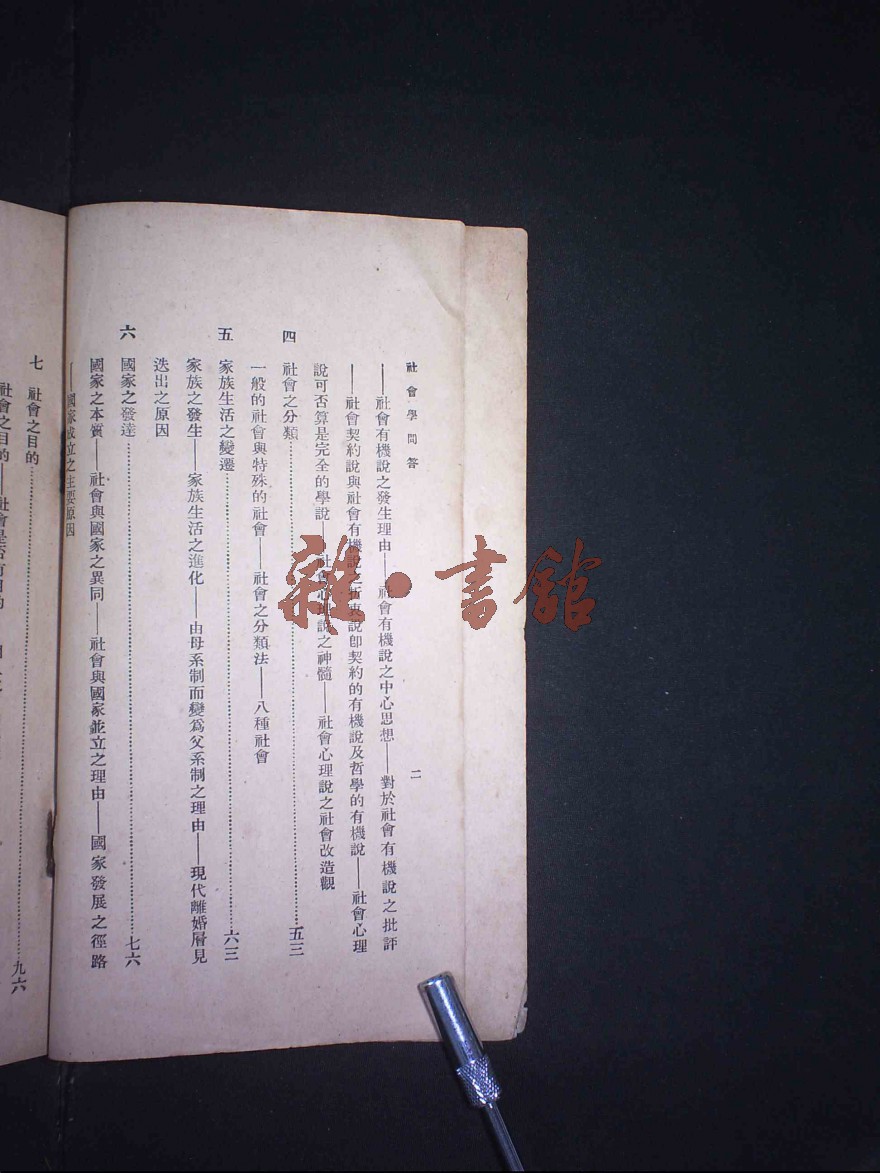 社會學問答
二
——社會有機說之發生理由——社會有機說之中心思想——對於社會有機說之批評
——社會契約說與社會有機說之折衷說卽契約的有機說及哲學的有機說——社會心理
說可否算是完全的學說——社會心理說之神髓——社會心理說之社會改造觀
四 社會之分類……五三
一般的社會與特殊的社會——社會之分類法——八種社會
五 家族生活之變遷……六三
家族之發生——家族生活之進化——由母系制而變爲父系制之理由——現代離婚層見
迭出之原因
六 國家之發達……七六
國家之本質——社會與國家之異同——社會與國家並立之理由——國家發展之徑路
——國家成立之主要原因
七 社會之目的……九六
社會之目的——社會是否有目的
雜·書館